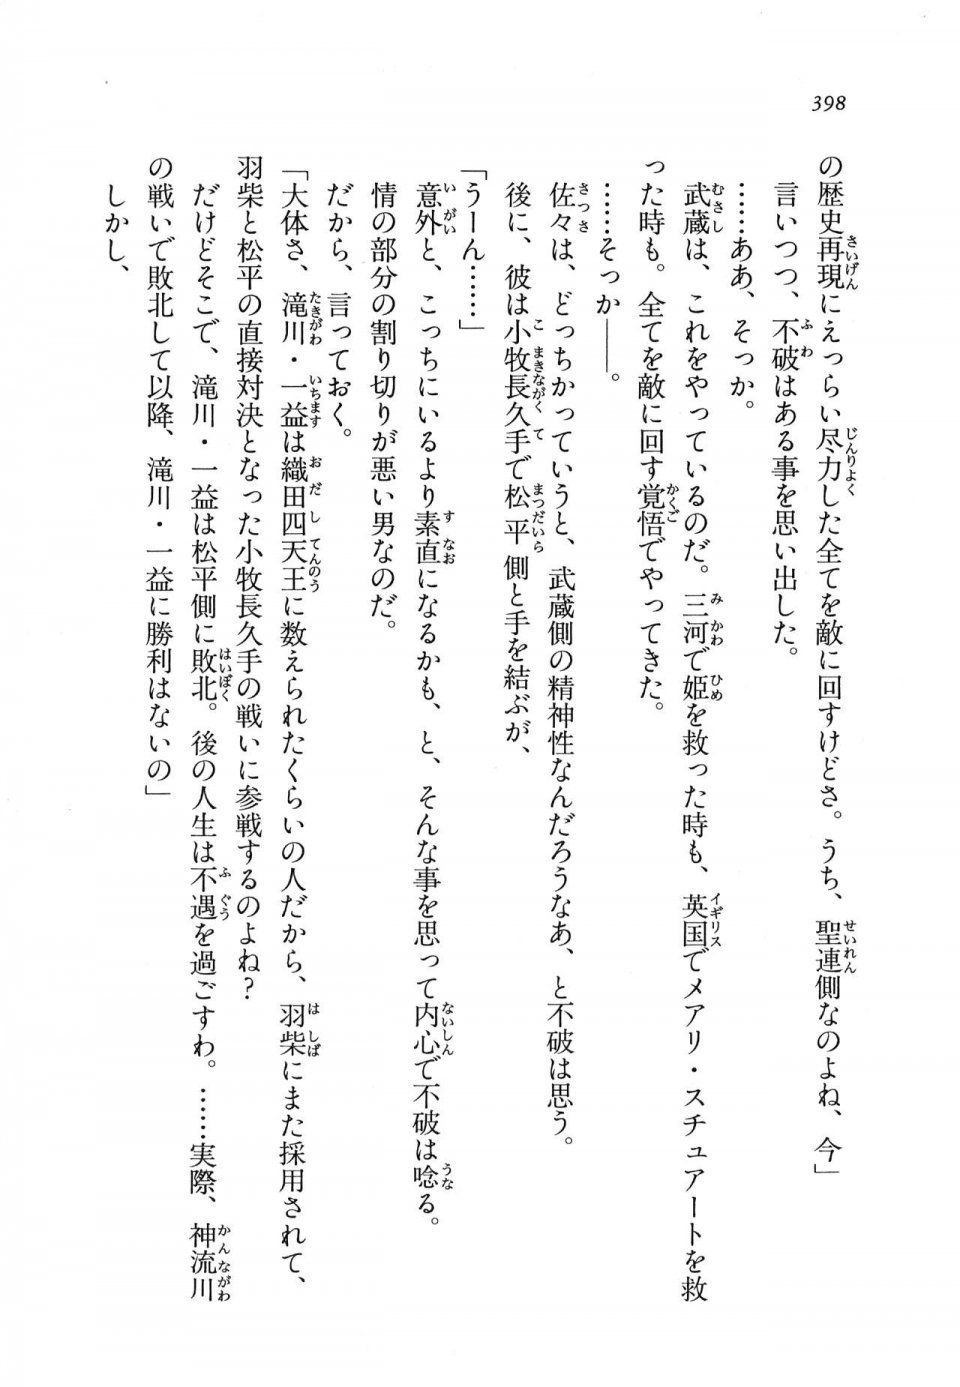 398
の歴史再現にえっらい尽力した全てを敵に回すけどさ。うち、聖連側なのよね、今」
言いつつ、不破はある事を思い出した。
……ああ、そっか。
武蔵は、これをやっているのだ。三河で姫を救った時も、英国でメアリ・スチュアートを救
った時も。全てを敵に回す覚悟でやってきた。
……そっか――。
佐々は、どっちかっていうと、武蔵側の精神性なんだろうなあ、と不破は思う。
後に、彼は小牧長久手で松平側と手を結ぶが、
「うーん……」
意外と、こっちにいるより素直になるかも、と、そんな事を思って内心で不破は唸る。
情の部分の割り切りが悪い男なのだ。
だから、言っておく。
「大体さ、滝川・一益は織田四天王に数えられたくらいの人だから、羽柴にまた採用されて、
羽柴と松平の直接対決となった小牧長久手の戦いに参戦するのよね?
だけどそこで、滝川・一益は松平側に敗北。後の人生は不遇を過ごすわ。……実際、神流川
の戦いで敗北して以降、滝川・一益に勝利はないの」
しかし、